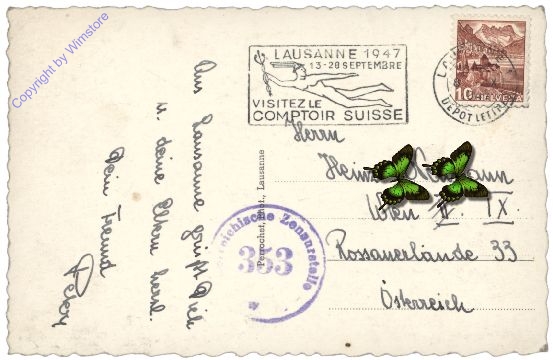 Copyright by Wimstore
LAUSANNE 1947
13-28 SEPTEMBRE
VISITEZ LE
COMPTOIR SUISSE
10 HELVETIA
DEPOT LETTRES
Aus Lausanne grüßt Dich
u. deine Eltern herzl.
Dein Freund
Peter
Perrochet, Phot., Lausanne
Zensurstelle
353
Herrn
Wien IX.
Rossauerlände 33
Österreich